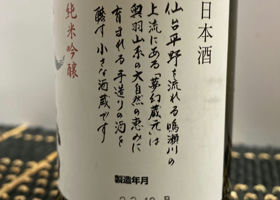 日本酒
仙台平野を流れる鳴瀬川の
上流にある「夢幻蔵元」は
奥羽山系の大自然の恵みに
育まれる手造りの酒を
醸す小さな酒蔵です
純米吟醸
製造年月